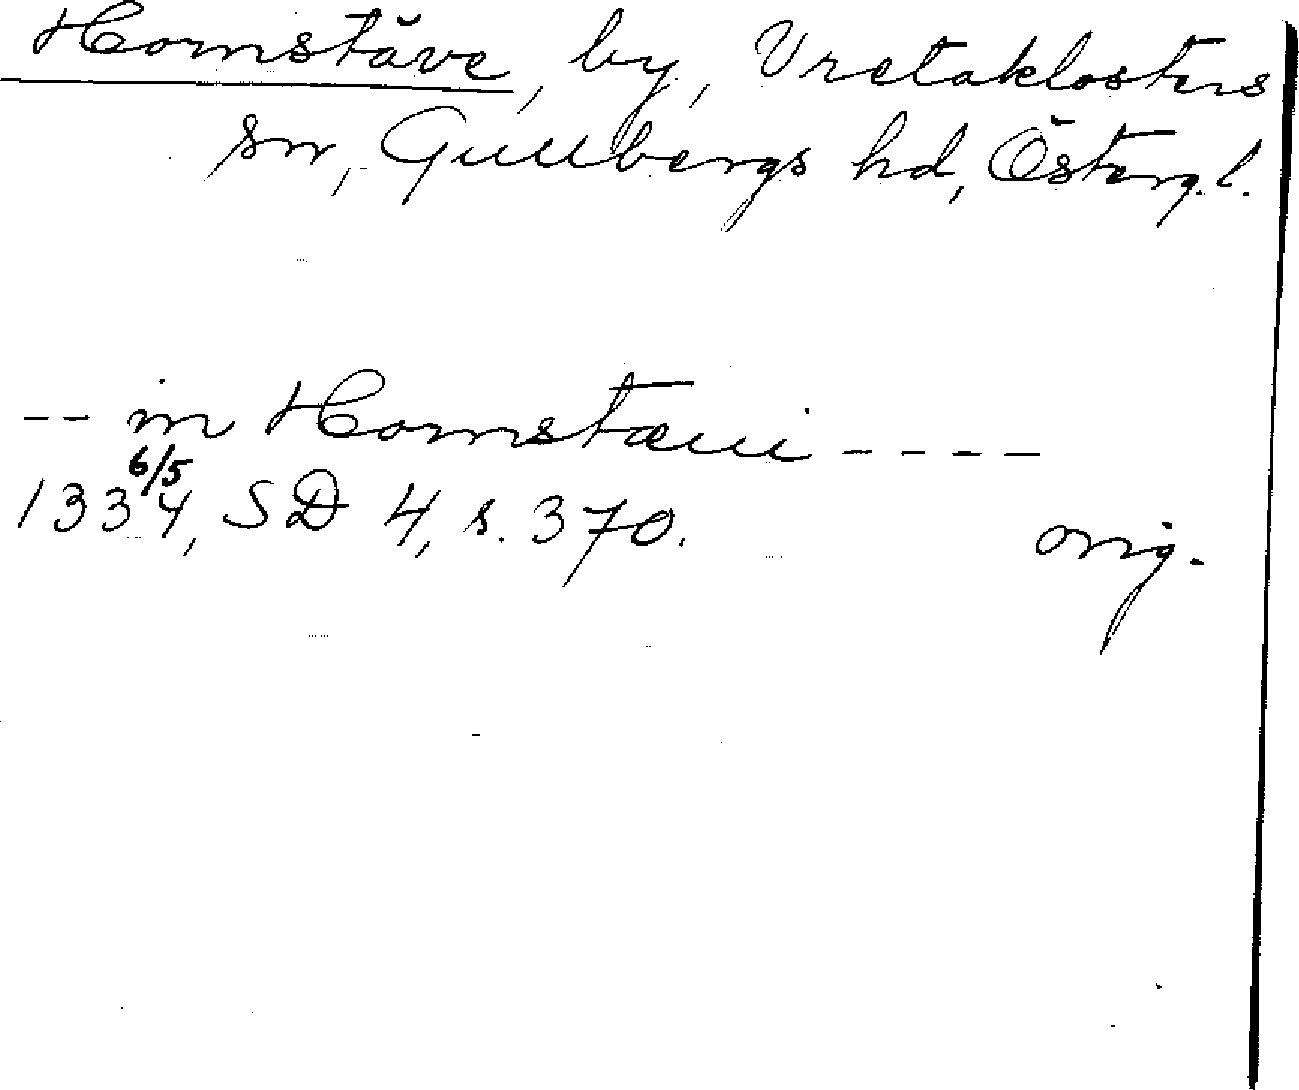 Hornstäve, by, Vretaklosters
sn, Gullbergs hd, Österg.l.
-- in Hornstæui ----
6/5
1334, SD 4, s. 370.
orig.